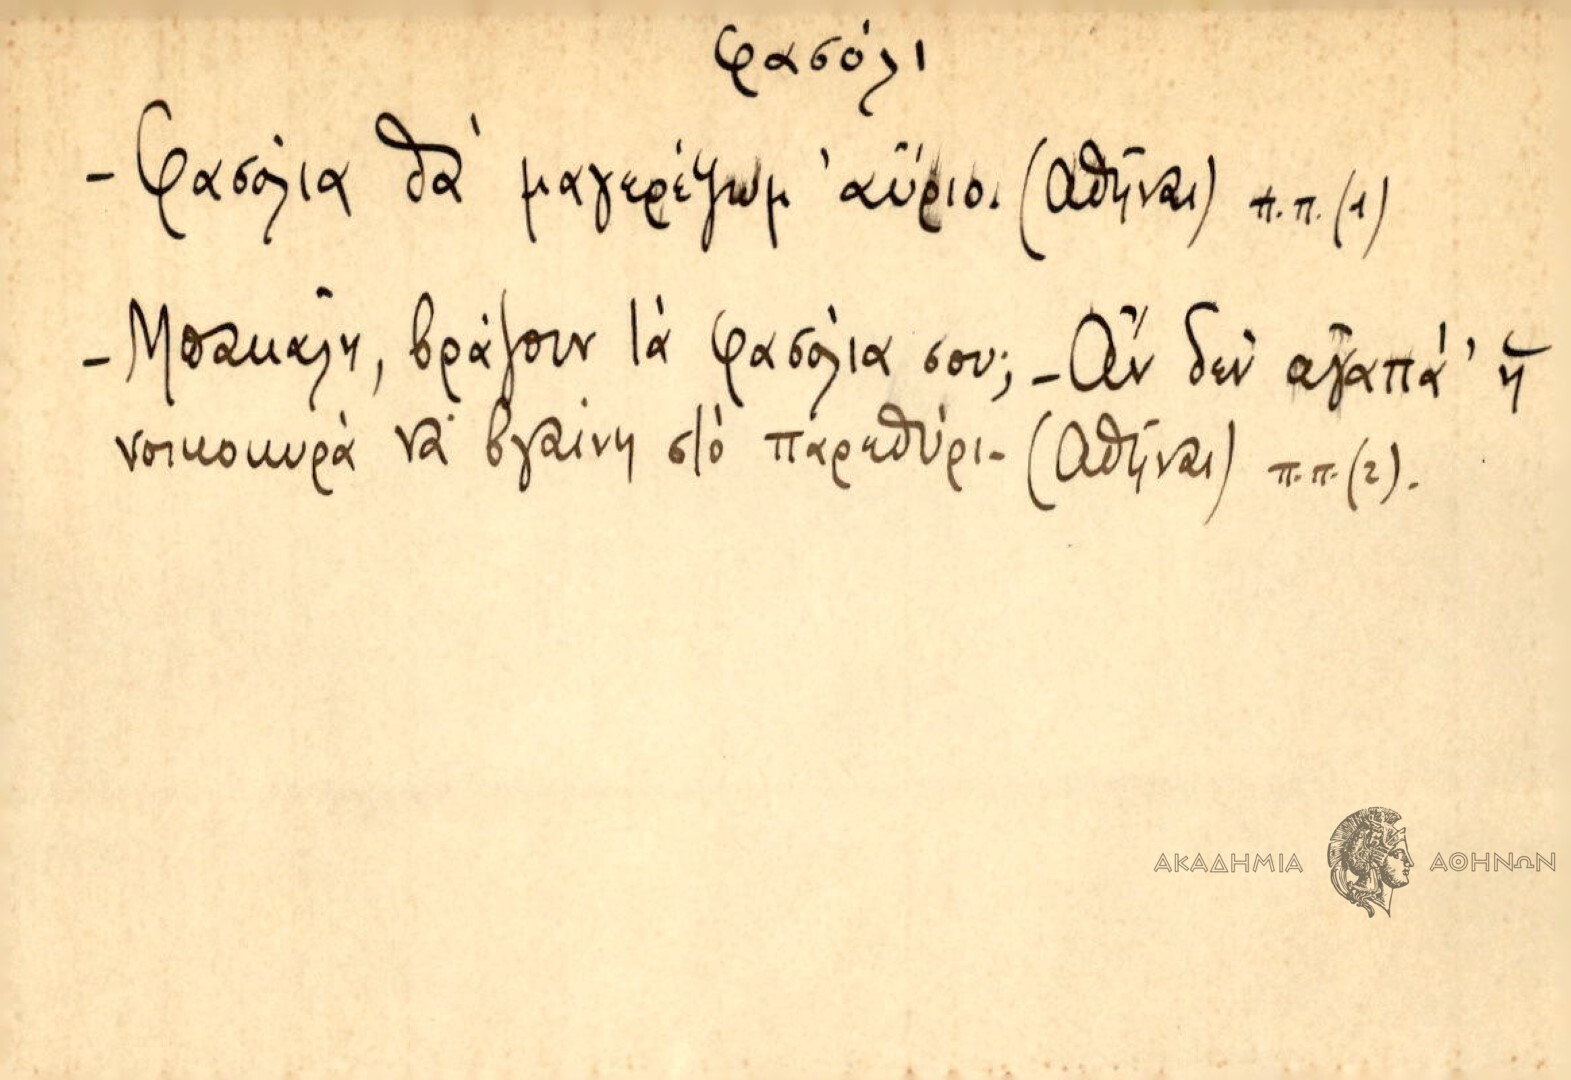 φασόλι
- Φασόλια θὰ μαγερέψωμ' αὔριο. (Ἀθῆναι) π.π. (1)
- Μπακάλη, βράζουν τὰ φασόλια σου; - Ἂν δὲν ἀγαπᾷ ἡ
νοικοκυρὰ νὰ βγαίνῃ στὸ παρεθύρι - (Ἀθῆναι) π.π. (2).
ΑΚΑΔΗΜΙΑ ΑΘΗΝΩΝ